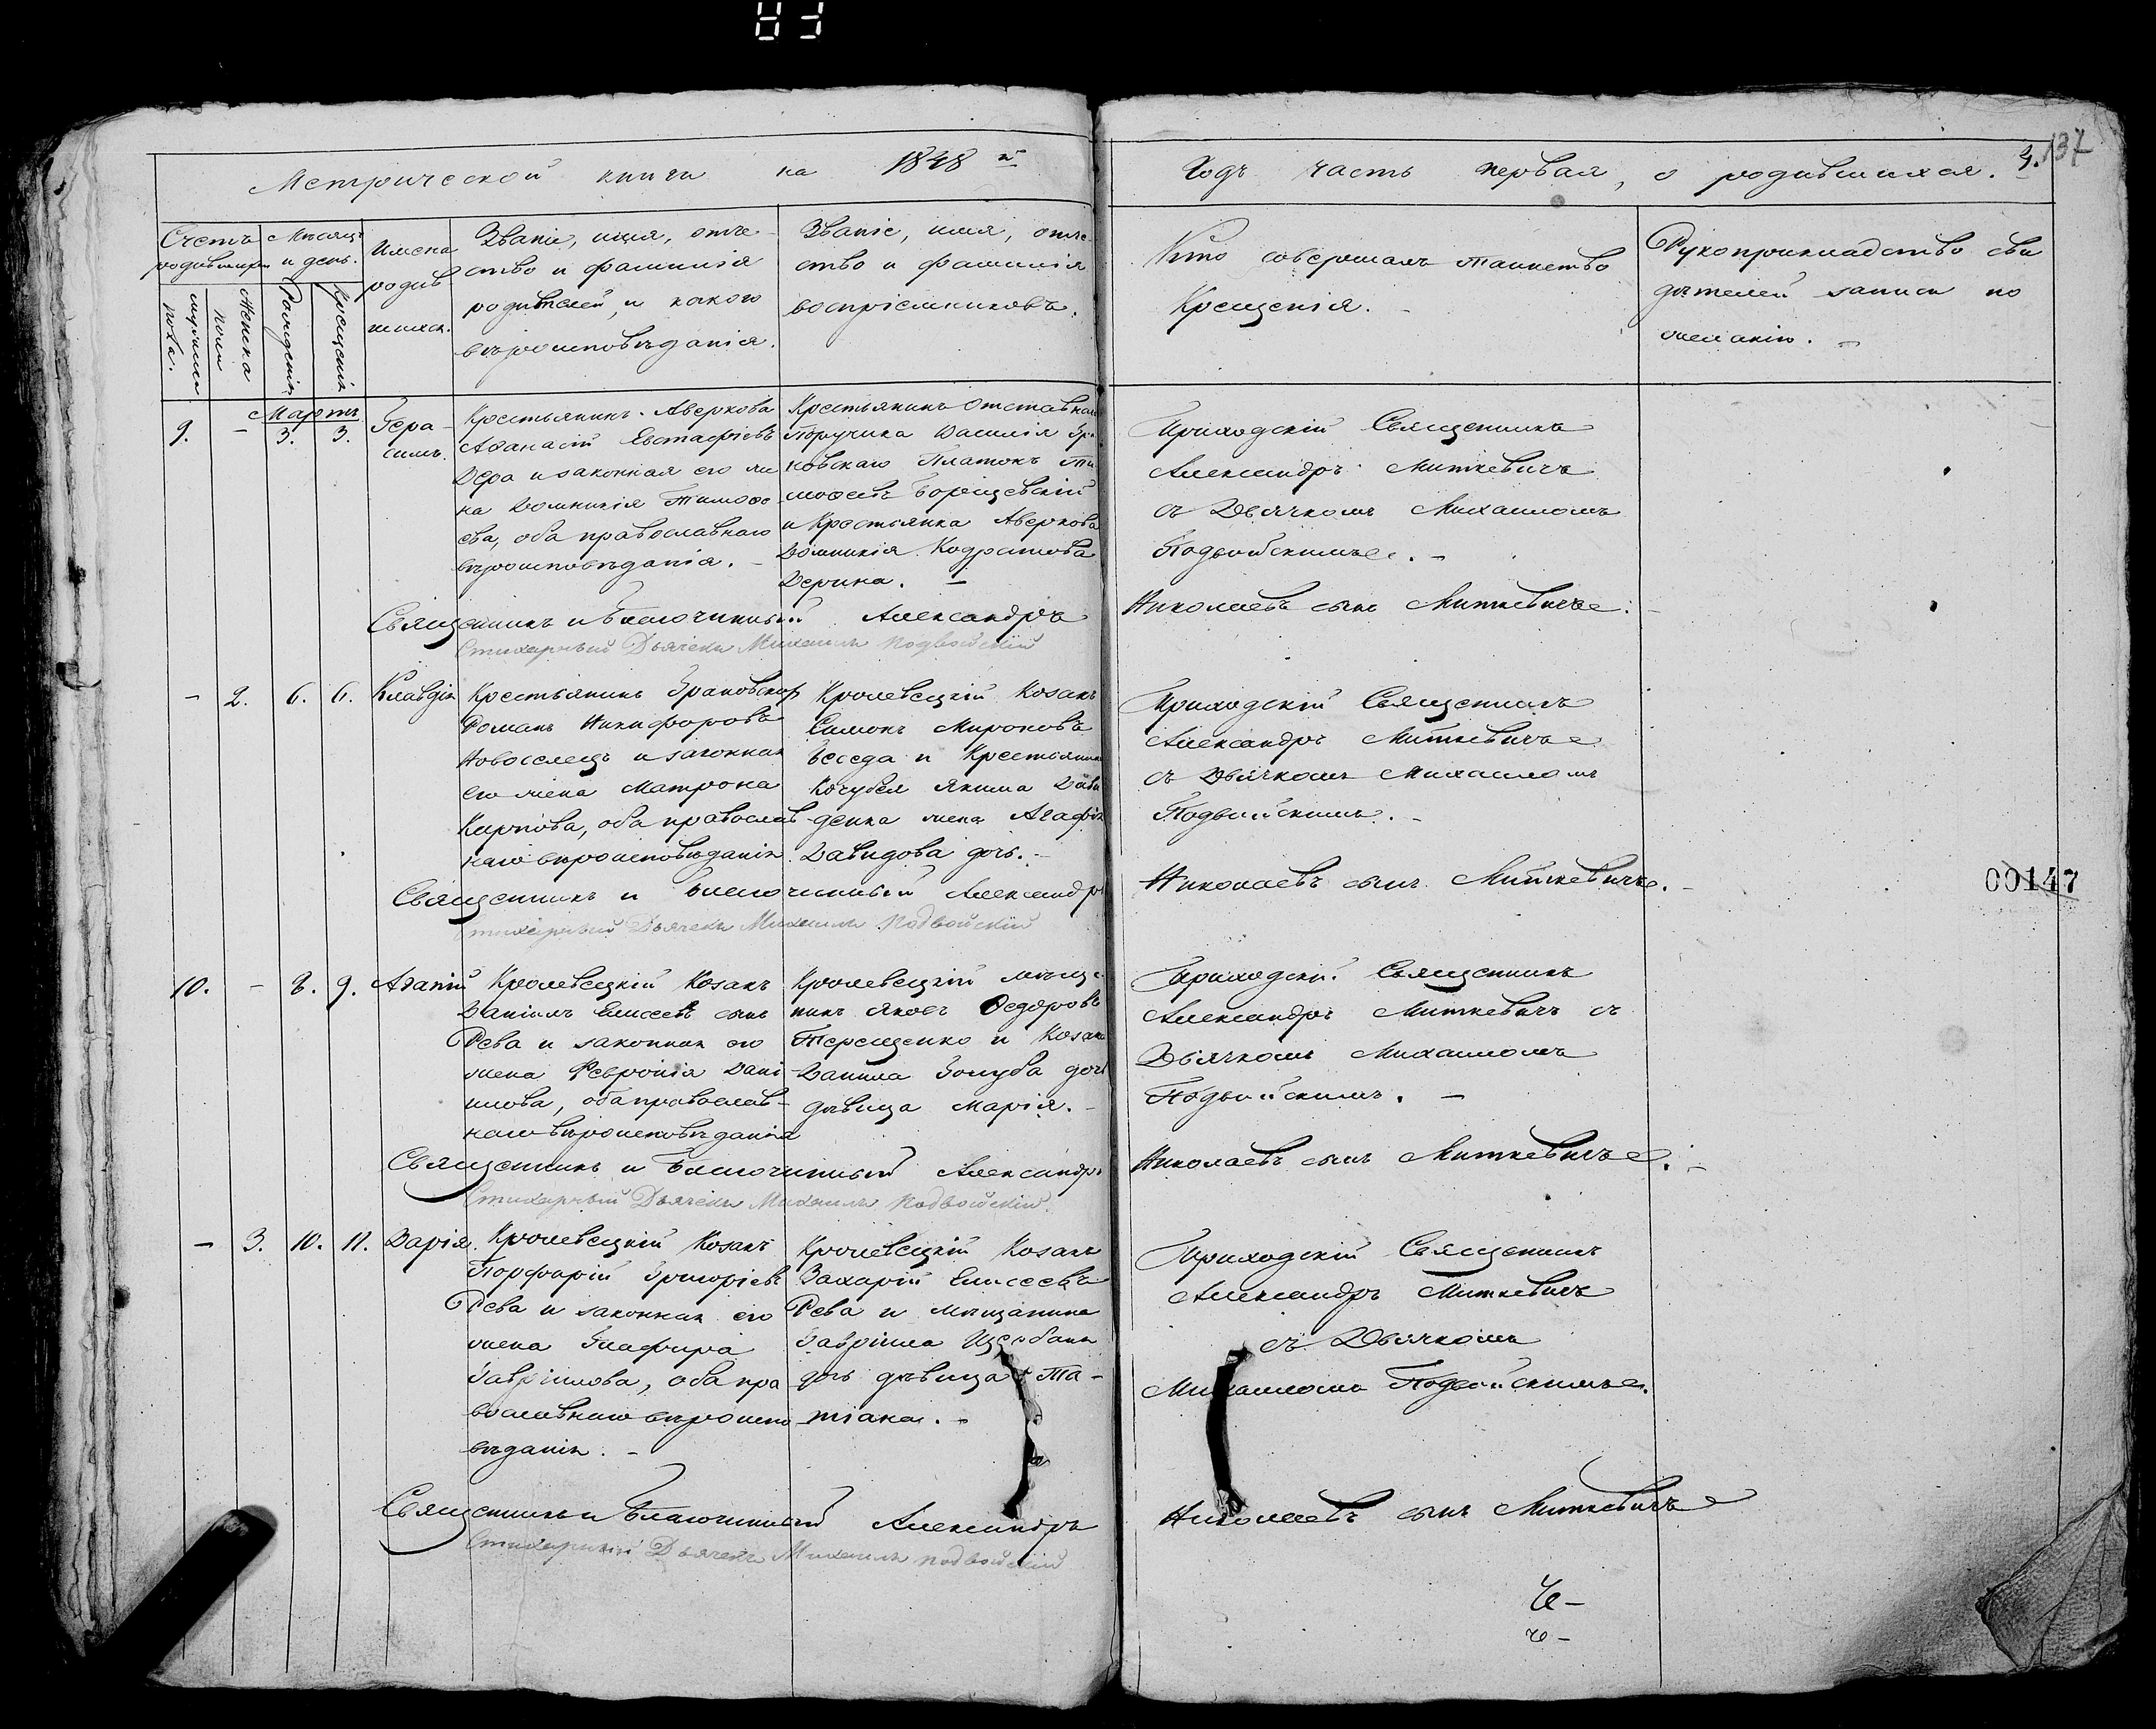 Метрической книги на 1848 й
Годъ часть первая, о родившихся. 4. 137
Счетъ родившихся
мужеска пола.
Женска пола
Мѣсяцъ и день.
Рожденія
Крещенія
Имена родившихся.
Званіе, имя, отчество и фамилія
родителей, и какого
вѣроисповѣданія.
Званіе, имя, отчество и фамилія
воспріемниковъ.
Кто совершалъ таинство
Крещенія.
Рукоприкладство сви
дѣтелей записи по
желанію.
Мартъ
9. - 3. 3. Гера-
симъ.
Крестьянинъ Аверкова
Аѳанасій Евстафіевъ
Дера и законная его же
на Домникія Тимоѳе
ева, оба православнаго
вѣроисповѣданія. -
Крестьянинъ Отставнаго
Поручика Василія
Платонъ Ти
моѳеевъ Борщевскій
и Крестьянка Аверкова
Домникія Кодратова
Дерика. -
Приходскій Священникъ
Александръ Миткевичъ
съ Дьячкомъ Михаиломъ
Подвойскимъ. -
Священникъ и Благочинный Александръ Николаевъ сынъ Миткевичъ.
Стихарный Дьячекъ Михаилъ Подвойскій
- 2. 6. 6. Клавдія
Крестьянинъ
Романъ Никифоровъ
Новоселецъ и законная
его жена Матрона
Карпова, оба православ
наго вѣроисповѣданія.
Кролевецкій Козакъ
Симонъ Мироновъ
Беседа и Крестьянина
Кочубея Якима Дави
денка жена Агафія
Давидова дочь. -
Приходскій Священникъ
Александръ Миткевичъ
съ Дьячкомъ Михаиломъ
Подвойскимъ. -
Священникъ и Благочинный Александръ Николаевъ сынъ Миткевичъ. -
00147
Стихарный Дьячекъ Михаилъ Подвойскій
10. - 8. 9. Агапій
Кролевецкій Козакъ
Даніилъ Елисеевъ сынъ
Рева и законная его
жена Февронія Дані
илова, оба православ-
наго вѣроисповѣданія
Кролевецкій мѣща
нинъ Яковъ Ѳедоровъ
Терещенко и Козака
Данила Голуба дочь
дѣвица Марія. -
Приходскій Священникъ
Александръ Миткевичъ съ
Дьячкомъ Михаиломъ
Подвойскимъ. -
Священникъ и Благочинный Александръ Николаевъ сынъ Миткевичъ. -
Стихарный Дьячекъ Михаилъ Подвойскій
- 3. 10. 11. Дарія.
Кролевецкій Козакъ
Порфирій Григоріевъ
Рева и законная его
жена Глафира
Гавріилова, оба пра
вославнаго вѣроиспо
вѣданія. -
Кролевецкій Козакъ
Захарій Елисеевъ
Рева и мѣщанина
Гавріила
дочь дѣвица Та-
тіана. -
Приходскій Священникъ
Александръ Миткевичъ
съ Дьячкомъ
Михаиломъ Подвойскимъ.
Священникъ и Благочинный Александръ Николаевъ сынъ Миткевичъ
Стихарный Дьячекъ Михаилъ Подвойскій